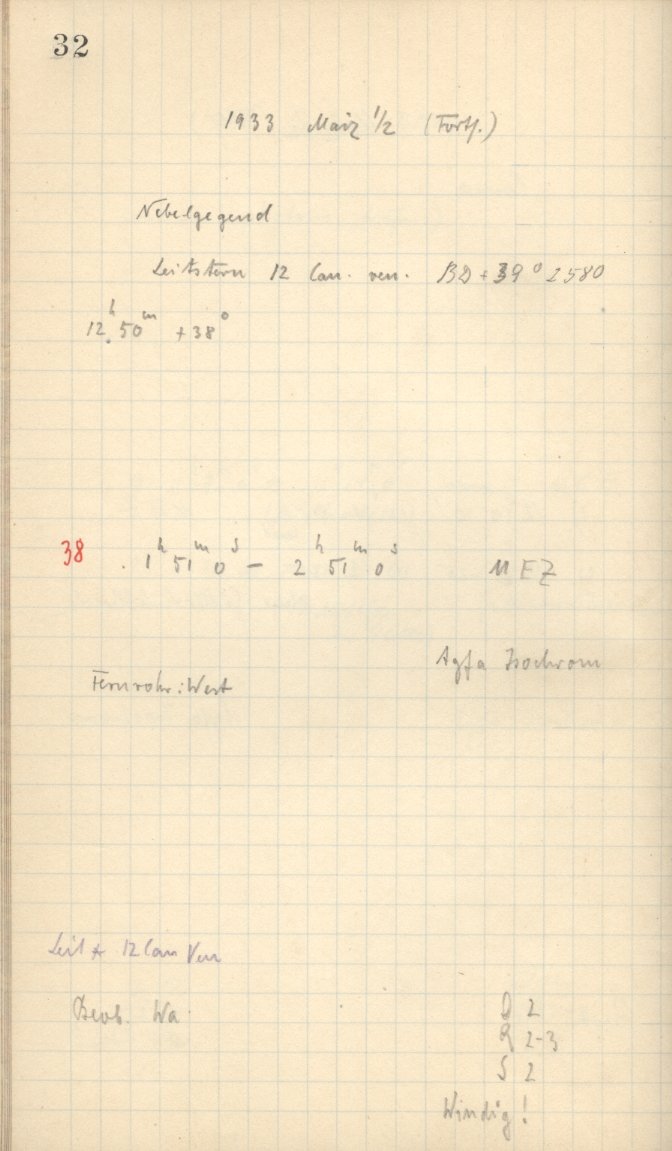 32
1933 März 1/2 (Forts.)
Nebelgegend
Leitstern 12 Can. ven. BD + 39° 2580
12h 50m + 38°
38 1h 51m 0s – 2h 51m 0s MEZ
Agfa Isochrom
Fernrohr: West
Leit * 12 Can Ven
Beob. Wa
D 2
R 2-3
S 2
Windig!